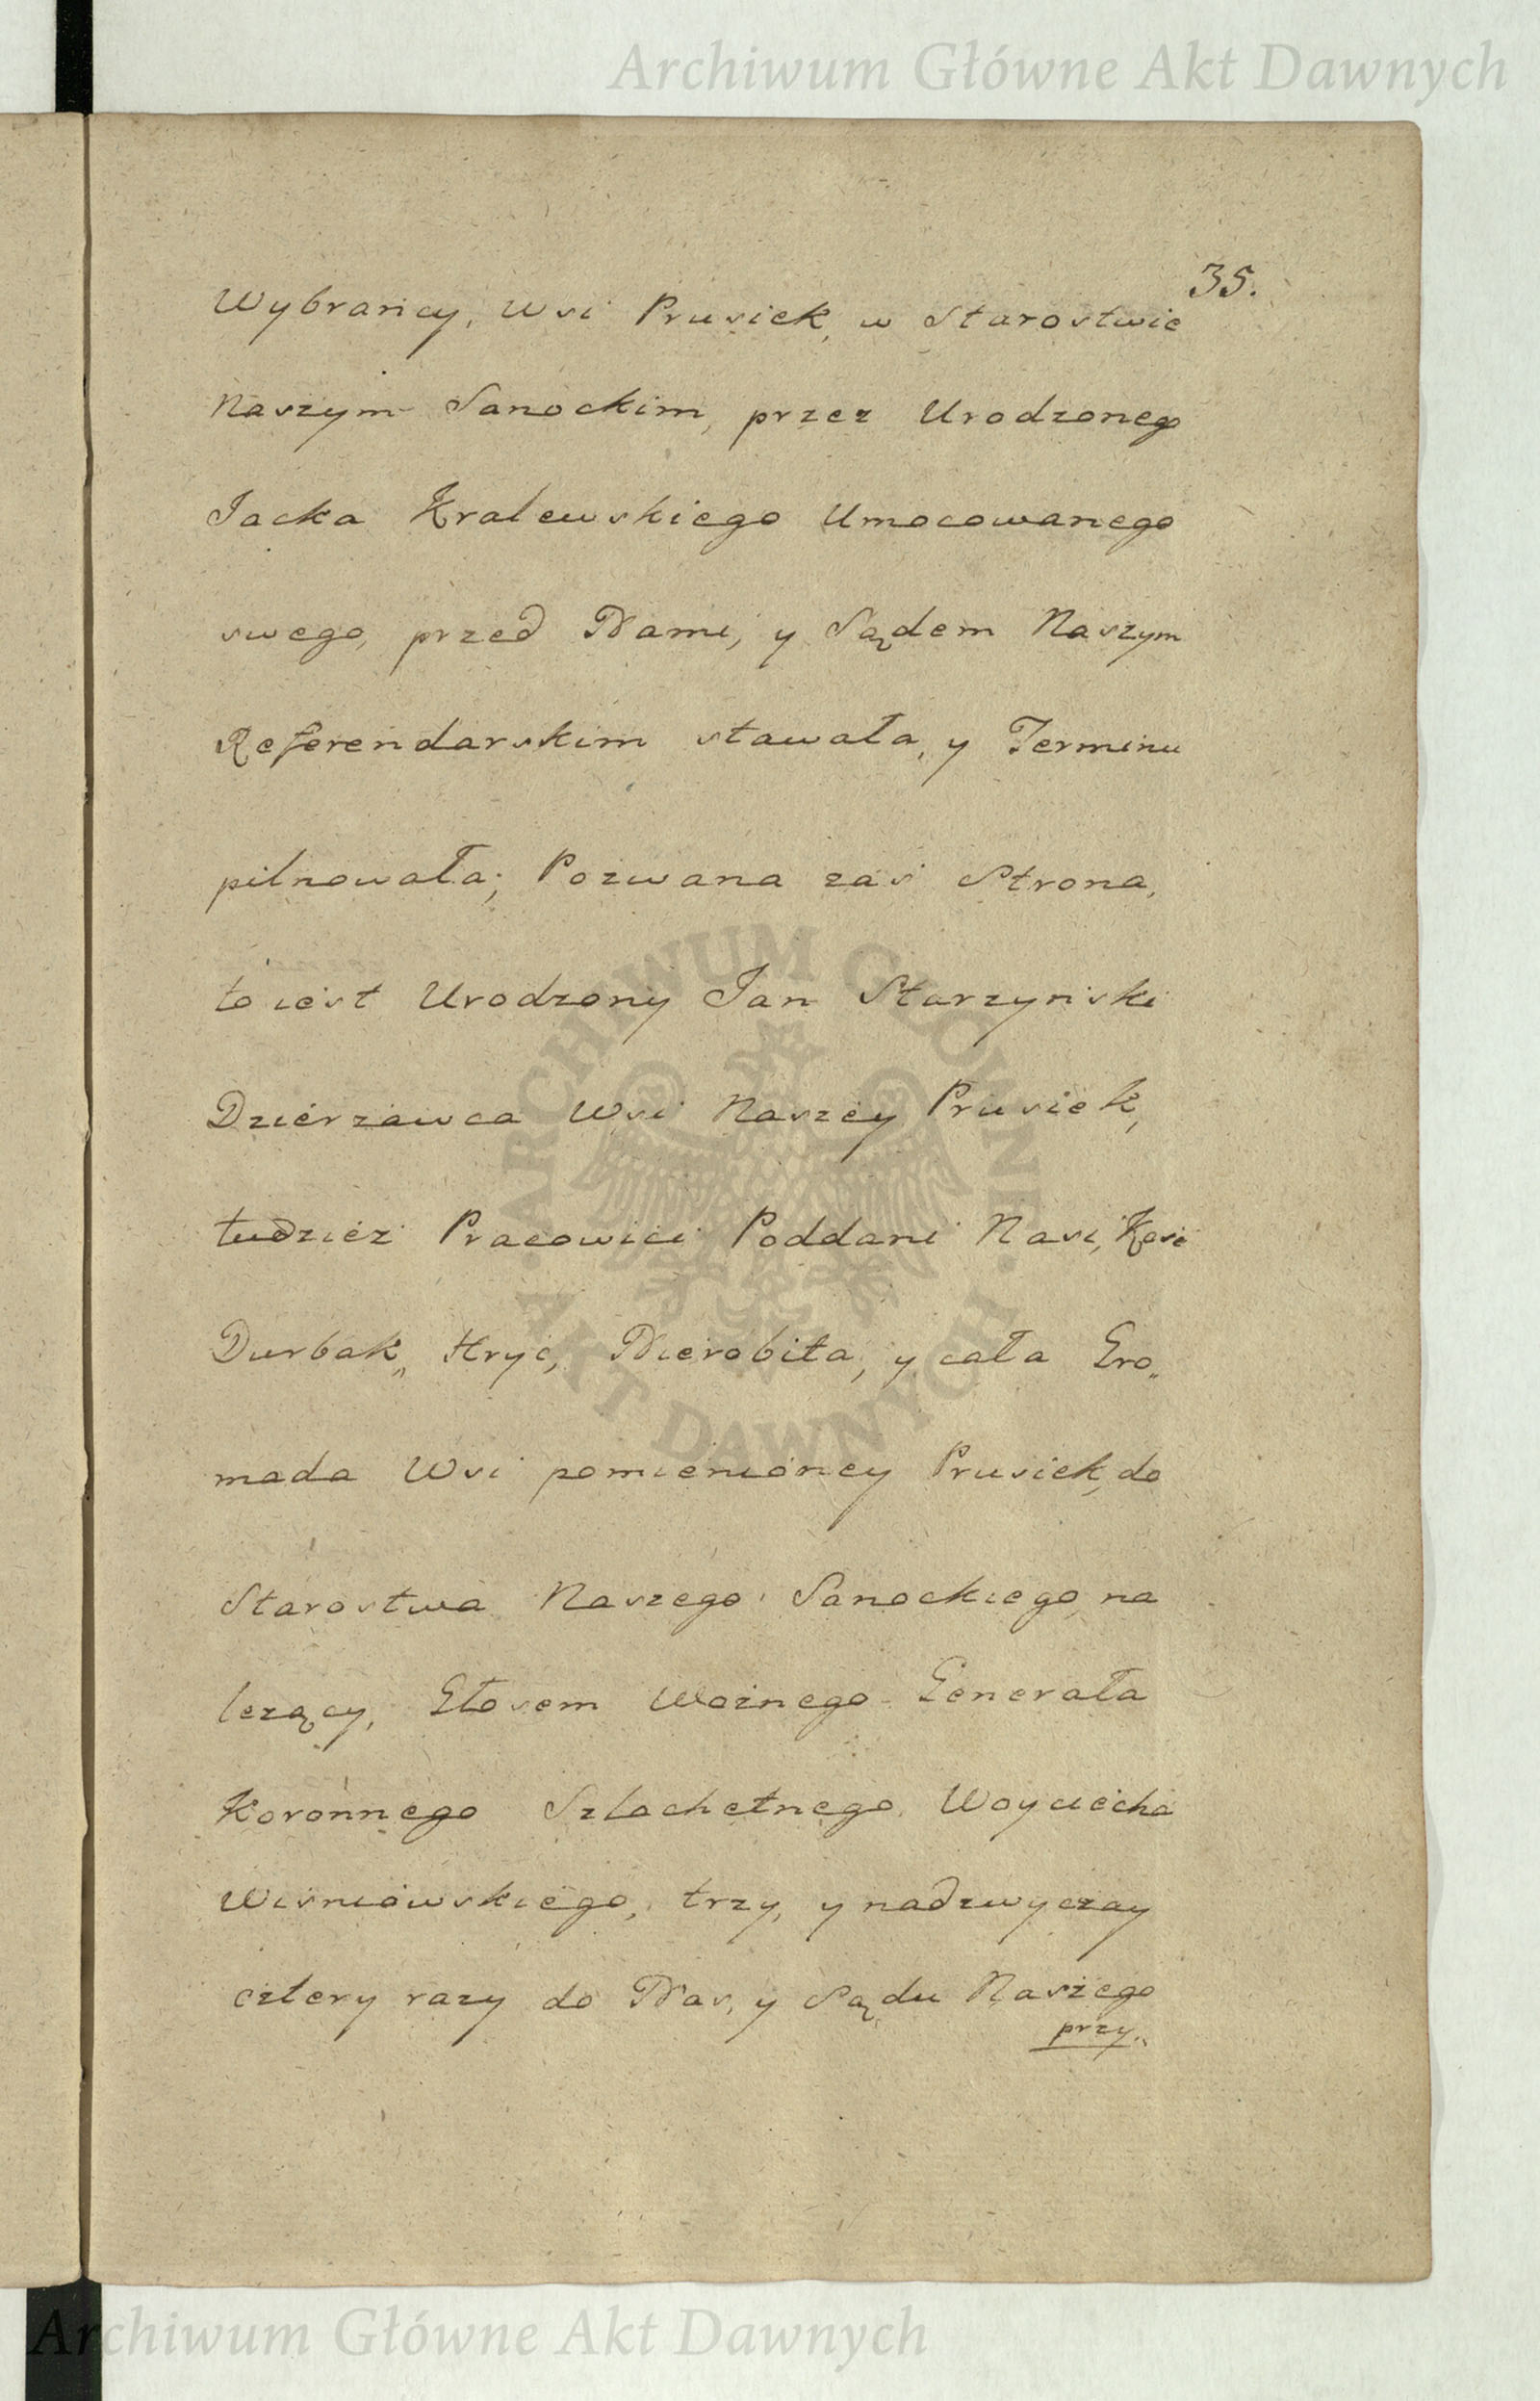 Archiwum Główne Akt Dawnych
35.
Wybrańcy, Wsi Prusiek, w Starostwie
Naszym Sanockim, przez Urodzoneg
Jacka Kralewskiego Umocowanego
swego, przed Nami, y Sądem Naszym
Referendarskim stawała, y Terminu
pilnowała; Pozwana zaś Strona,
to iest Urodzony Jan Starzyński
Dzierzawca Wsi Naszey Prusiek,
tudzież Pracowici Poddani Nasi,
Durbak,, Hryć, Nierobiła, y cała Gro„
mada Wsi pomienioney Prusiek, do
Starostwa Naszego Sanockiego na
lezący, Głosem Woźnego Generała
Koronnego Szlachetnego Woyciecha
Wiśniowskiego, trzy, y nadzwyczay
cztery razy do Nas, y Sądu Naszego
przy„
ARCHIWUM GŁÓWNE
AKT DAWNYCH
Archiwum Główne Akt Dawnych